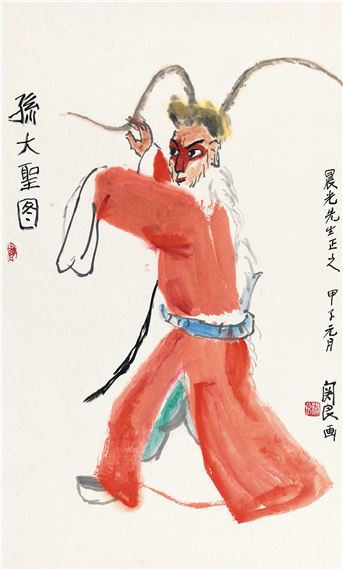 孫大聖图
晨光先生正之 甲子元月
関良画